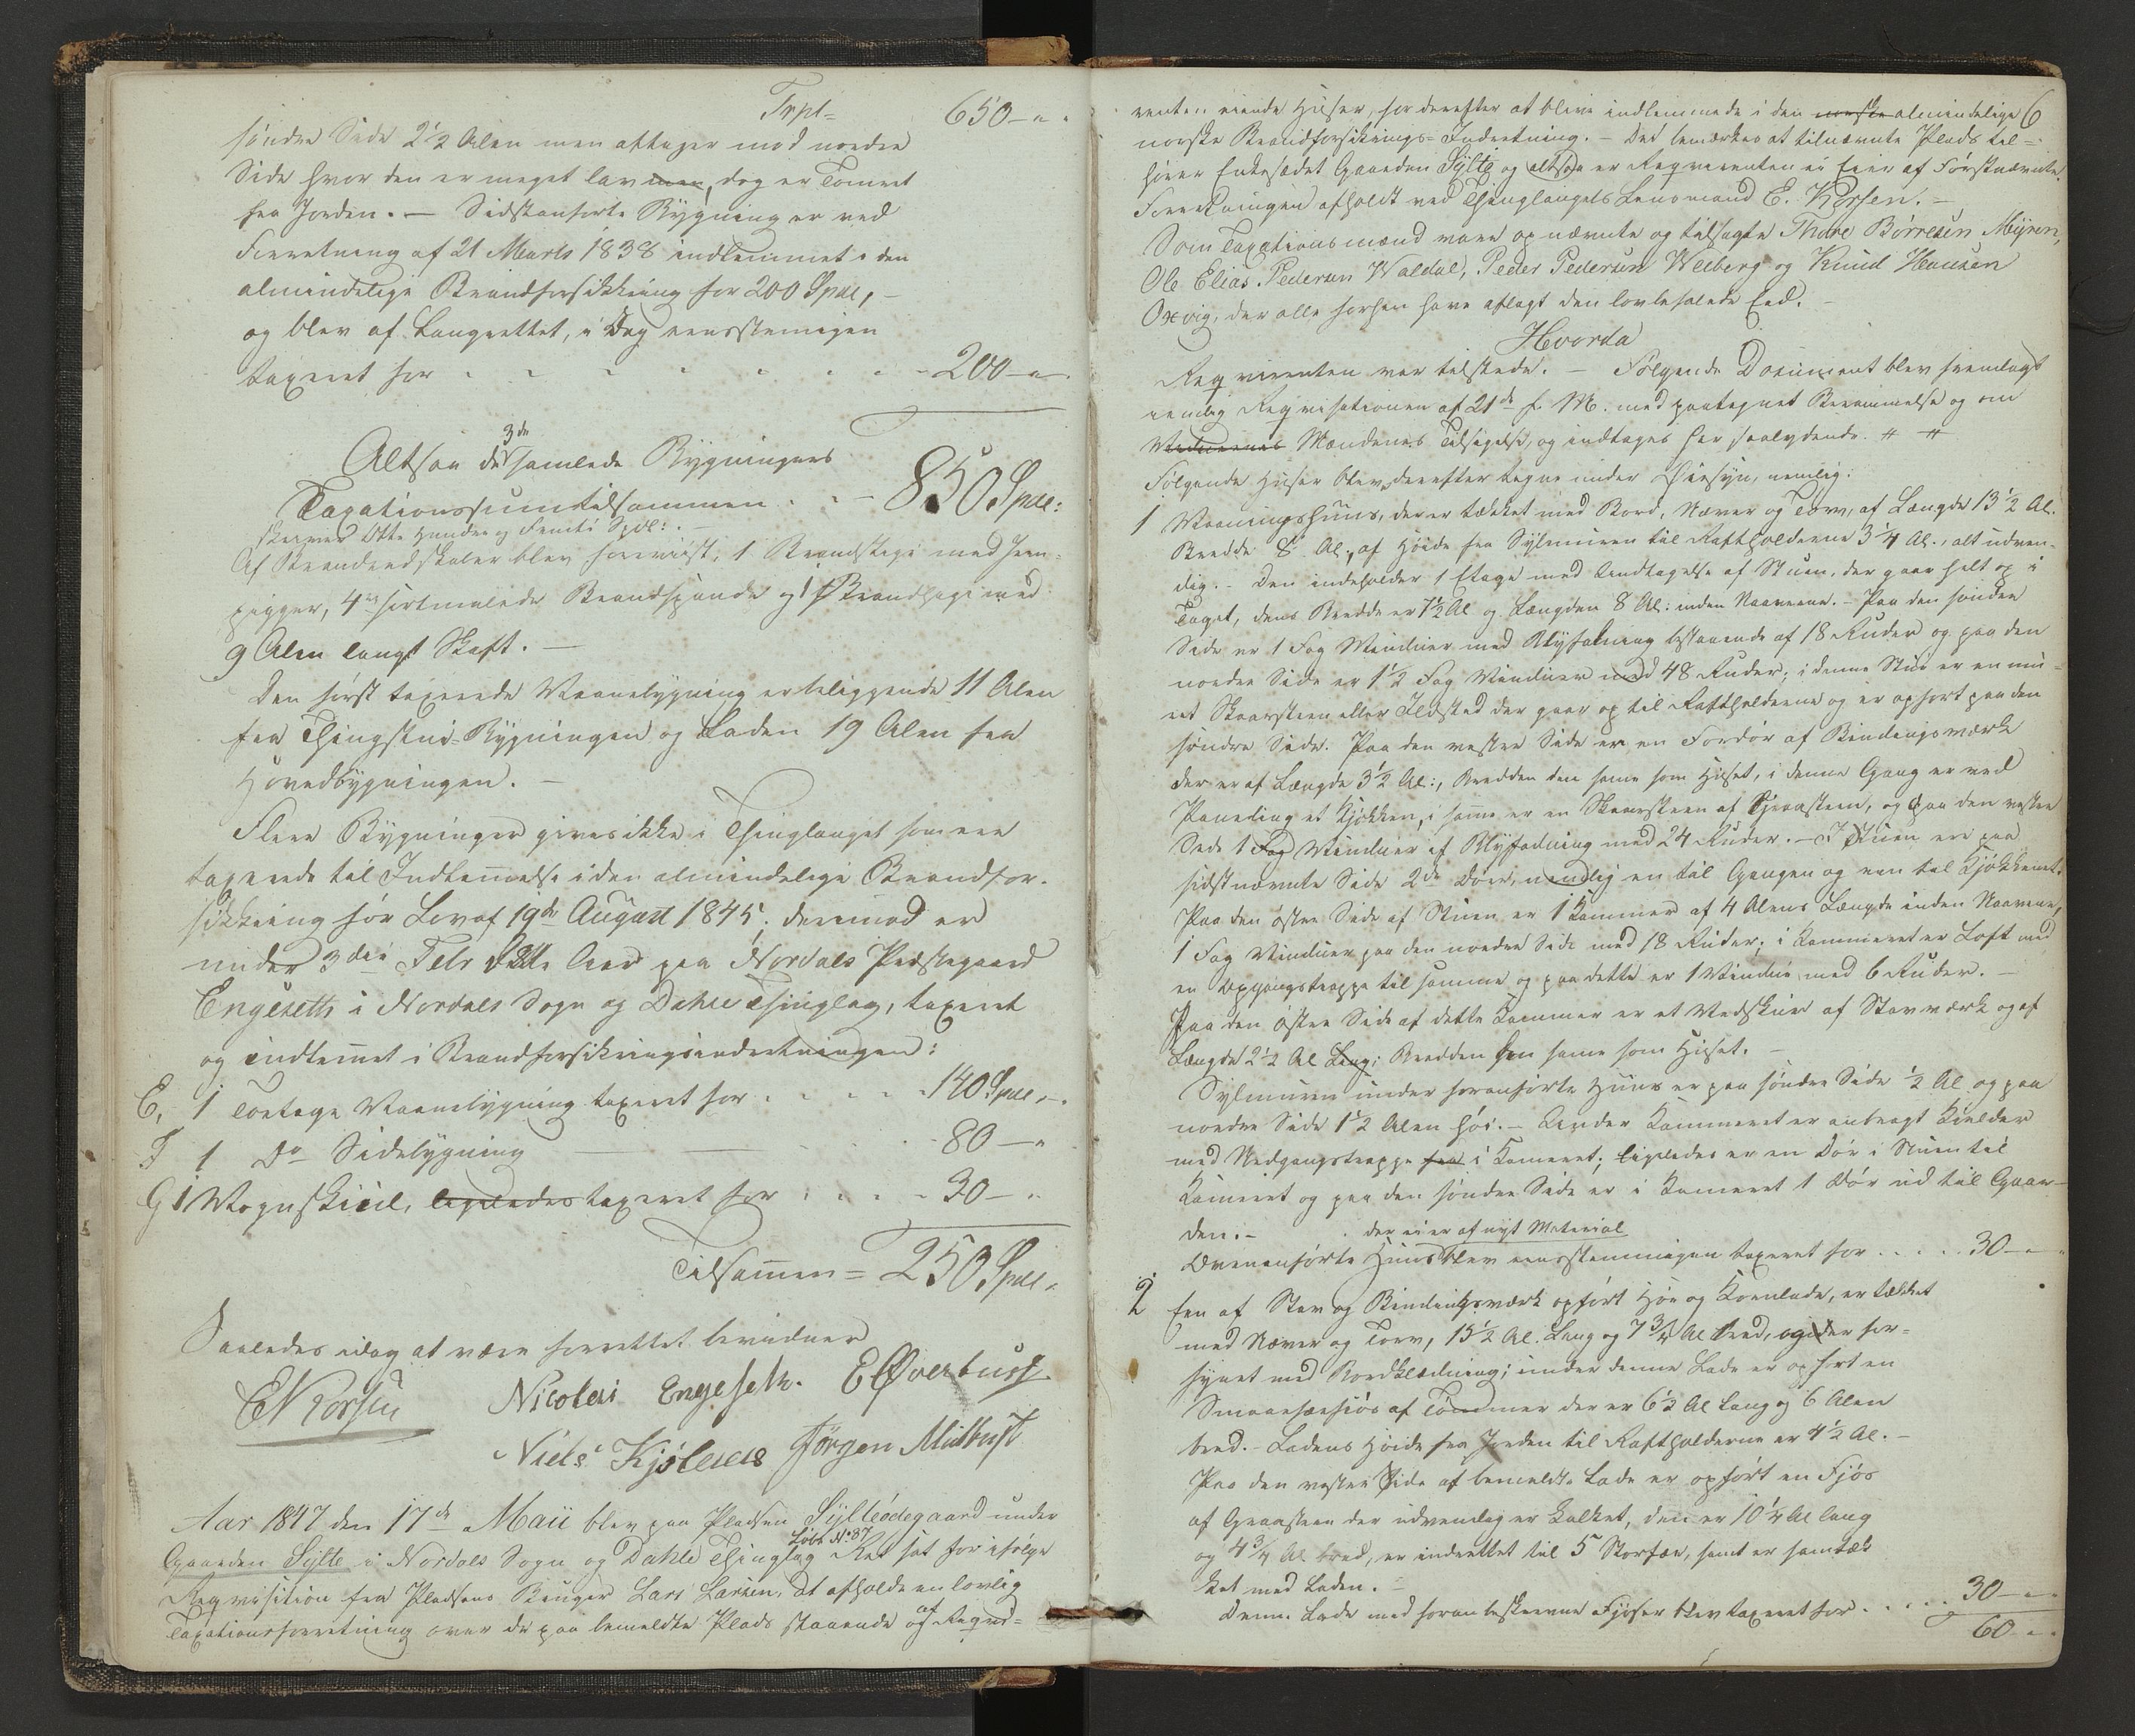 Trpt= 650-"-
søndre Side 2½ Alen men aftager mod nordre
Side hvor den er meget lav men, dog er Tømret
fra Jorden. — Sidstanførte Bygning er ved
Forretning af 21 Marts 1838 indlemmet i den
almindelige Brandforsikkring for 200 Spdl, -
og blev af Laugrettet, i Dag eensstemigen
taxeret for - - - - - - 200-"-
Altsaa de 3de samlede Bygningers
Taxationssum tilsammen . . - 850 Spdl:
skriver Otte Hundre og Femti Spdl: . -
Af Brandredskaber blev foreviist: 1 Brandstige med Jern-
pigger, 4re hirtmalede Brandspande og 1 Brandhage med
9 Alen langt Skaft. —
Den først taxerede Vaanebygning er beliggende 11 Alen
fra Thingstue-Bygningen og Laden 19 Alen fra
Hovedbygningen. —
Flere Bygninger gives ikke i Thinglauget som ere
taxerede til Indlemelse i den almindelige Brandfor-
sikkring før Lov af 19de August 1845; derimod er
under 3die Febr dette Aar paa Nordals Præstegaard
Engesetts i Nordals Sogn og Dahle Thinglag, taxeret
og indlemet i Brandforsikringsindretningen:
E, 1 Toetages Vaanebygning taxeret for . . . . 140 Spdl, -.
F 1 Do Sidebygning — — . . . . 80-"
G 1 Vognskiul, ligeledes taxeret for . . . - 30-"
Tilsamen = 250 Spdl.
Saaledes idag at være forrettet bevidner
E Korsen Nicolai Engeseth. E Øverbust
Niels Kjølaas Jørgen Mielbust
Aar 1847 den 17de Maii blev paa Pladsen Sylteødegaard under
Gaarden Sylte Løbe No 87 i Nordals Sogn og Dahle Thinglag Ret sat for ifølge
Reqvisition fra Pladsens Bruger Lars Larsen, at afholde en lovlig
Taxationsforretning over de paa bemeldte Plads staaende og af Reqvi=
6
renten eiende Huser, for derefter at blive indlemmede i den norske almindelige
norske Brandforsikrings-Indretning. — Det bemærkes at tilnævnte Plads til=
hører Enkesædet Gaarden Sylte og altsaa er Reqvirenten ei Eier af Førstnævnte.
Forretningen afholdt ved Thinglaugets Lensmand E. Korsen. -
Som Taxationsmænd vare opnævnte og tilsagte Thore Børresen Myren,
Ole Elias Pedersen Waldal, Peder Pedersen Weiberg og Knud Hansen
Oxvig, der alle forhen have aflagt den lovbefalede Eed. -
Hvorda
Reqvirenten var tilstede. - Følgende Document blev fremlagt
nemlig Reqvisitionen af 21de f. M. med paategnet Berammelse og om
Mændenes Tilsigelse, og indtages her saalydende. # #
Følgende Huser blev derefter tagne under Øiesyn, nemlig:
1 Vaaningshuus, der er tækket med Bord, Næver og Torv, af Længde 13½ Al.
Bredde 8 Al., af Høide fra Sylmuren til Raftholderne 3¼ Al., alt udven-
dig. - Den indeholder 1 Etage med Undtagelse af Stuen, der gaar helt op i
Taget, dens Bredde er 7½ Al og Længden 8 Al: inden Naaverne. - Paa den søndre
Side er 1 Fag Vinduer med Blyfatning bestaaende af 18 Ruder og paa den
nordre Side er 1½ Fag Vinduer med 48 Ruder; i denne Stue er en mu=
ret Skorsteen eller Ildsted der gaar op til Raftholderne og er opført paa den
søndre Side. Paa den vestre Side er en Fordør af Bindingsværk
der er af Længde 3½ Al:, Bredden den same som Huset, i denne Gang er ved
Paneling et Kjøkken, i same er en Skorsteen af Graasteen, og paa den vestre
Side 1 Fag Vinduer af Blyfadning med 24 Ruder. - I Stuen ere paa
sidstnævnte Side 2de Døre, nemlig en til Gangen og een til Kjøkkenet.
Paa den østre Side af Stuen er 1 Kammer af 4 Alens Længde inden Naaverne,
1 Fag Vinduer paa den nordre Side med 18 Ruder; i Kammeret er Loft med
en Opgangstrappe til samme og paa dette er 1 Vindue med 6 Ruder. -
Paa den østre Side af dette Kammer er et Vedskiul af Stavværk og af
Længde 2½ Al Lang; Bredden den same som Huset. -
Sylmuren under foranførte Huus er paa søndre Side ½ Al og paa
nordre Side 1½ Alen høi. - Under Kammeret er anbragt Kielder
med Nedgangstrappe fra i Kameret; ligeledes er en Dør i Stuen til
Kameret og paa den søndre Side er i Kameret 1 Dør ud til Gaar-
den. - der ei er af nyt Material
Ovenanførte Huus blev eensstemmigen taxeret for . . . . 30-"-
2 Een af Stav og Bindingsværk opført Høe og Kornlade, er tækket
med Næver og Torv, 15½ Al. Lang og 7¾ Al bred, og er for=
synet med Bordklædning; under denne Lade er opført en
Smaafæefiøs af Tømmer der er 6½ Al Lang og 6 Alen
bred. - Ladens Høide fra Jorden til Raftholderne er 4½ Al. -
Paa den vestre Side af bemeldte Lade er opført en Fjøs
af Graasteen der udvendig er kalket, den er 10¼ Al lang
og 4¾ Al bred, er indrettet til 5 Storfæe, samt er samtæk
ket med Laden. -
Denne Lade med foranbeskrevne Fjøser blev taxeret for . . . . 30-"-
60-"-